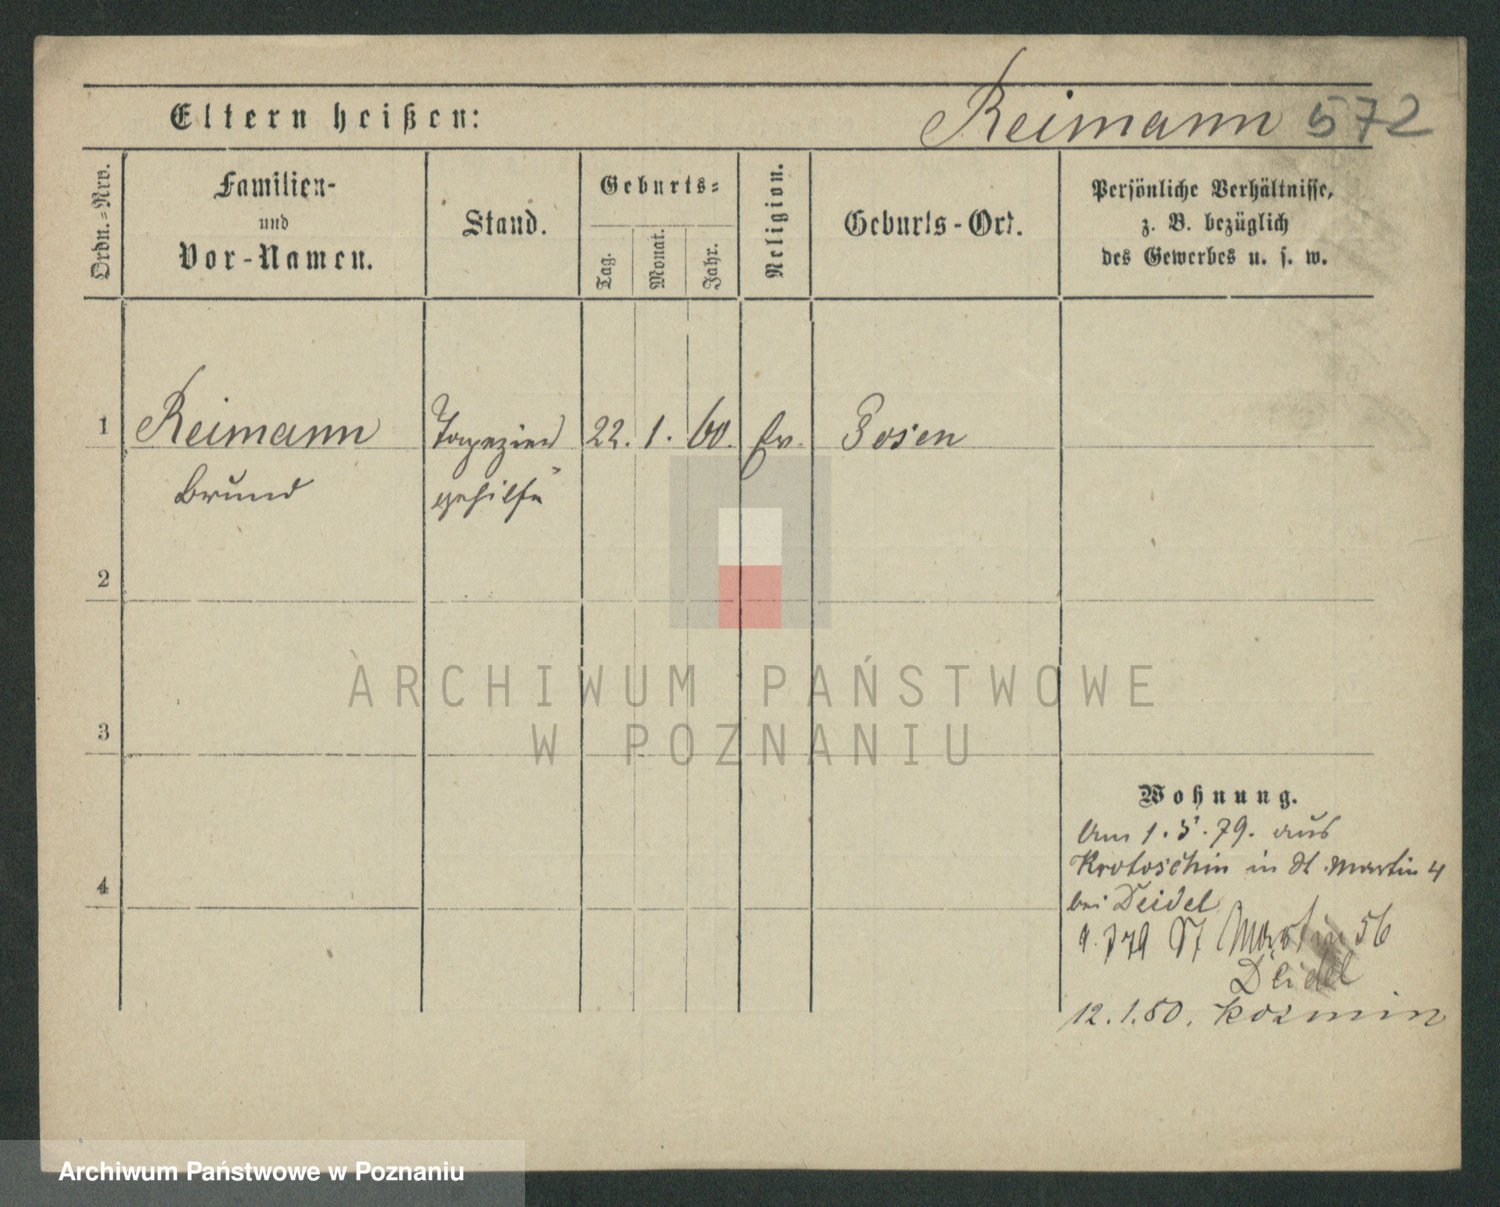 Eltern heißen: Reimann 572
Ordn.-Nro.
Familien-
und
Vor-Namen.
Stand.
Geburts-
Tag.
Monat.
Jahr.
Religion.
Geburts-Ort.
Persönliche Verhältnisse,
z. B. bezüglich
des Gewerbes u. s. w.
1 Reimann Tapezier 22. 1. 60. Ev. Posen
Bruno gehilfe
2
3
4
Wohnung.
Am 1. 5. 79. aus
Krotoschin in St. Martin 4
bei Deidel
79 St Martin 56
Deidel
12.1.80. Kozmin
ARCHIWUM PAŃSTWOWE
W POZNANIU
Archiwum Państwowe w Poznaniu